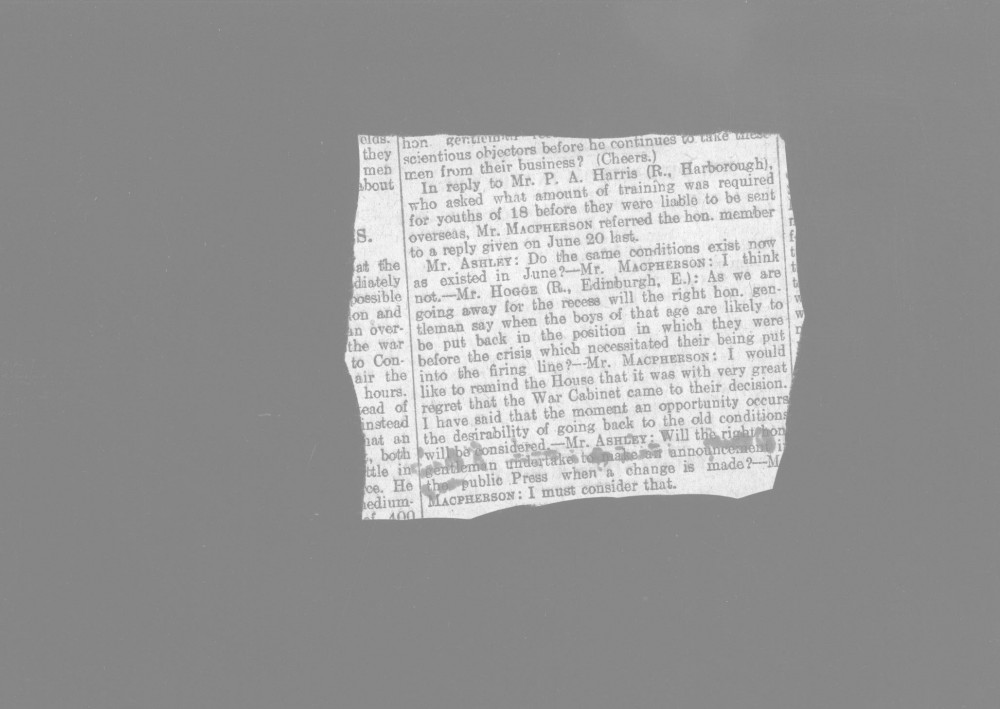 elds.
they
men
about
S.
at the
diately
possible
on and
an over-
the war
to Con-
air the
hours.
ead of
instead
hat an
, both
ttle in
ce. He
edium-
of 400
hon. gentleman
scientious objectors before he continues to take these
men from their business? (Cheers.)
In reply to Mr. P. A. Harris (R., Harborough),
who asked what amount of training was required
for youths of 18 before they were liable to be sent
overseas, Mr. MACPHERSON referred the hon. member
to a reply given on June 20 last.
Mr. ASHLEY: Do the same conditions exist now
as existed in June?—Mr. MACPHERSON: I think
not.—Mr. HOGGE (R., Edinburgh, E.): As we are
going away for the recess will the right hon. gen-
tleman say when the boys of that age are likely to
be put back in the position in which they were
before the crisis which necessitated their being put
into the firing line?—Mr. MACPHERSON: I would
like to remind the House that it was with very great
regret that the War Cabinet came to their decision.
I have said that the moment an opportunity occurs
the desirability of going back to the old conditions
will be considered.—Mr. ASHLEY: Will the right hon
gentleman undertake to make an announcement i
the public Press when a change is made?—M
MACPHERSON: I must consider that.